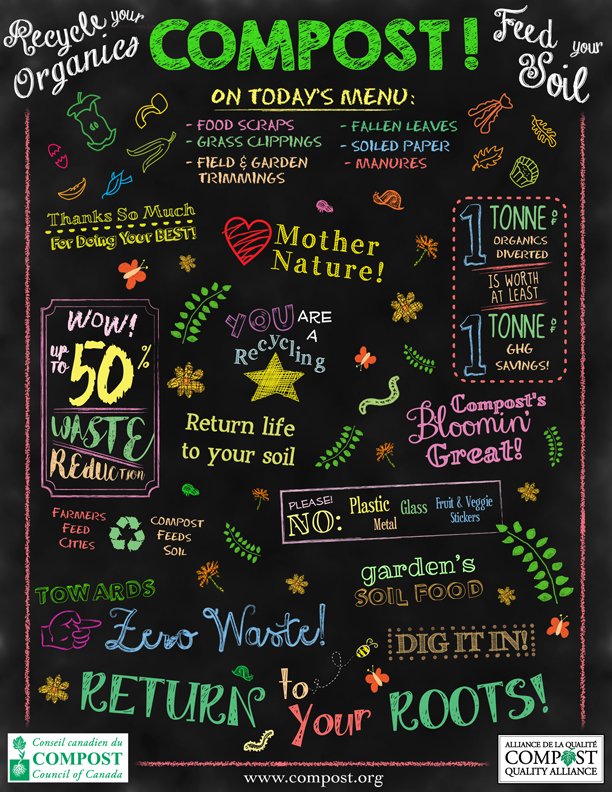 Recycle your
Organics
COMPOST!
Feed your
Soil
ON TODAY'S MENU:
- FOOD SCRAPS
- GRASS CLIPPINGS
- FIELD & GARDEN
TRIMMINGS
- FALLEN LEAVES
- SOILED PAPER
- MANURES
Thanks So Much
For Doing Your BEST!
Mother
Nature!
1 TONNE OF
ORGANICS
DIVERTED
IS WORTH
AT LEAST
1 TONNE OF
GHG
SAVINGS!
WOW!
UP TO 50%
WASTE
REDUCTION
YOU ARE
A
Recycling
Return life
to your soil
Compost's
Bloomin'
Great!
PLEASE!
NO:
Plastic
Metal
Glass
Fruit & Veggie
Stickers
FARMERS
FEED
CITIES
COMPOST
FEEDS
SOIL
garden's
SOIL FOOD
TOWARDS
Zero Waste!
DIG IT IN!
RETURN to
Your ROOTS!
Conseil canadien du
COMPOST
Council of Canada
www.compost.org
ALLIANCE DE LA QUALITÉ
COMPOST
QUALITY ALLIANCE